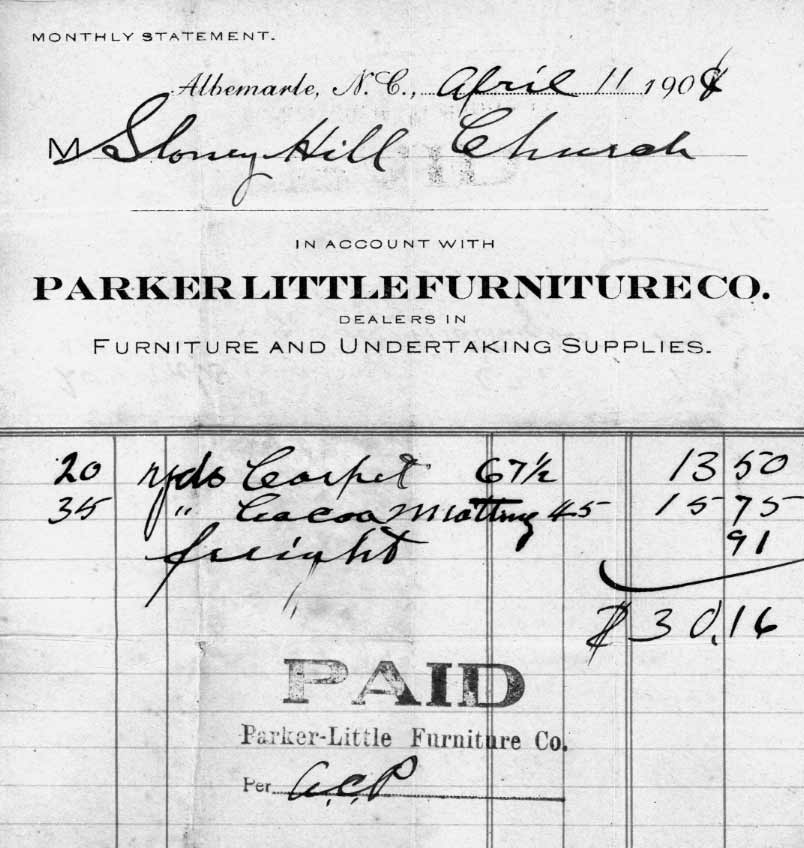 MONTHLY STATEMENT.
Albemarle, N. C., April 11 190
M Stoney Hill Church
IN ACCOUNT WITH
PARKER LITTLE FURNITURE CO.
DEALERS IN
FURNITURE AND UNDERTAKING SUPPLIES.
20 yds Carpet 67½ 13 50
35 " Cocoa Matting 45 15 75
freight 91
$30.16
PAID
Parker-Little Furniture Co.
Per A.C.P